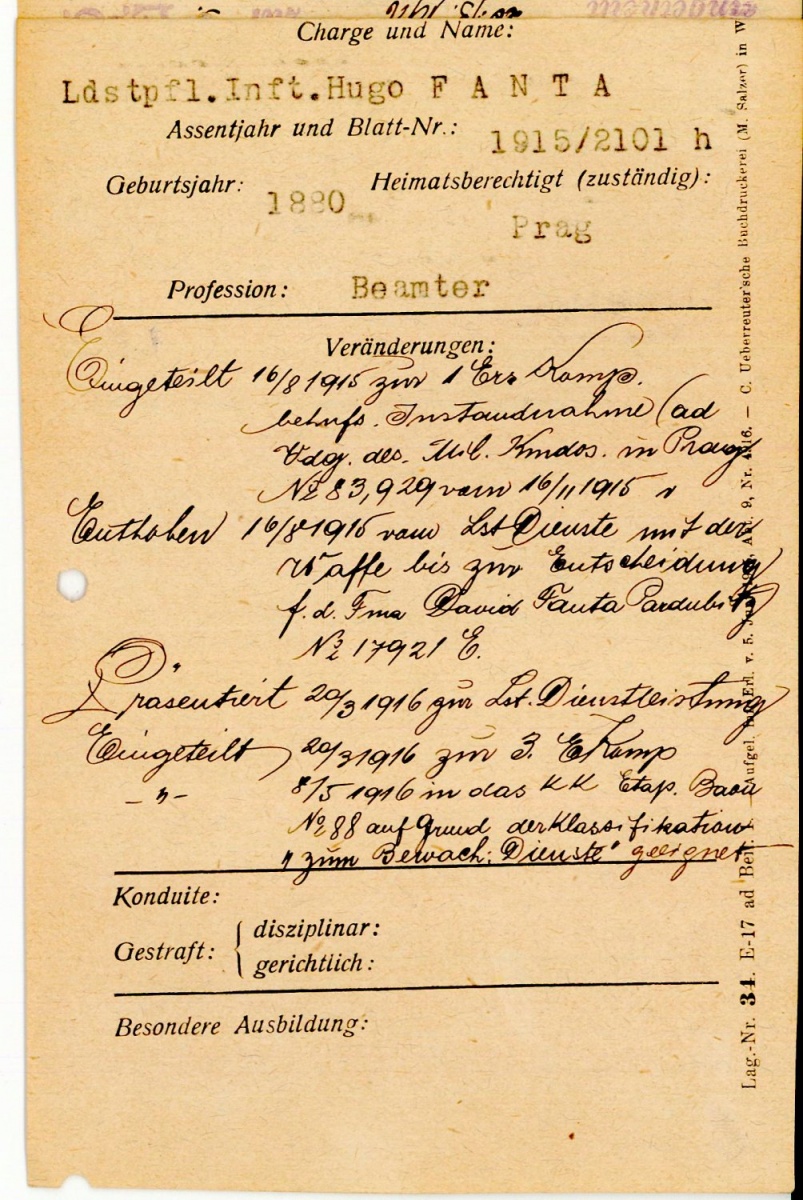 Charge und Name:
Ldstpfl.Inft.Hugo F A N T A
Assentjahr und Blatt-Nr.: 1915/2101 h
Geburtsjahr: 1880 Heimatsberechtigt (zuständig):
Prag
Profession: Beamter
Veränderungen:
Eingeteilt 16/8 1915 zur 1 Ers Komp.
behufs. Instandnahme (ad
Vdg. des. Mil. Kmdos. in Prag
№ 83,929 vom 16/11 1915
Enthoben 16/8 1915 vom Lst Dienste mit der
Waffe bis zur Entscheidung
f. d. Fma David Fanta Pardubitz
№ 17921 E.
Präsentiert 20/3 1916 zur Lst. Dienstleistung
Eingeteilt 20/3 1916 zur 3. EKomp
— „ — 8/5 1916 in das KK Etap. Baon
№ 88 auf Grund der Klassifikation
„ zum Bewach: Dienste" geeignet
Konduite:
Gestraft: { disziplinar:
gerichtlich:
Besondere Ausbildung:
Lag.-Nr. 34. E-17 ad Beil. 1. — Aufgel. Erl. v. 5. Abt. 9, Nr. 1916. — C. Ueberreuter'sche Buchdruckerei (M. Salzer) in W